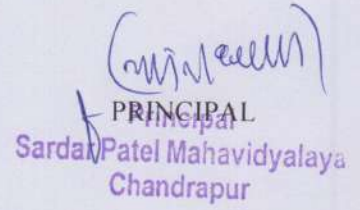 PRINCIPAL
Principal
Sardar Patel Mahavidyalaya
Chandrapur